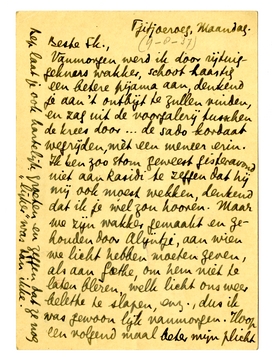 Tjitjoeroeg, Maandag.
(9-8-37)
Beste Sk.,
Vanmorgen werd ik door rijtuig-
wakker, schoot haastig
een betere pijama aan, denkend
je aan 't ontbijt te zullen vinden,
en zag uit de voorgalerij tusschen
de krees door ... de sado kordaat
wegrijden, met een meneer erin.
Ik ben zoo stom geweest gisteravond
niet aan te zeggen dat hij
mij ook moest wekken, denkend
dat ik je wel zou hooren. Maar
we zijn wakker gemaakt en ge-
houden door Alijntje, aan wien
we licht hebben moeten geven,
als aan Goethe, om hem niet te
laten blèren, welk licht ons weer
belette te slapen, enz., dus ik
was gewoon lijk vanmorgen. Hoop
een volgend maal beter mijn plicht
laat je ook hartelijk groeten en zeggen dat ze nog
was dan ikke!